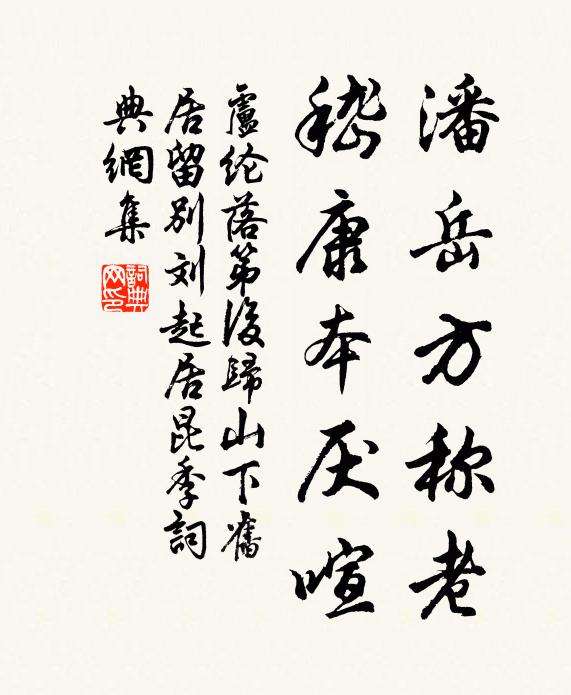 潘岳方称老
嵇康本厌喧
盧纶落第後歸山下舊
居留别刘起居昆季詞
典網集
詞典
网印